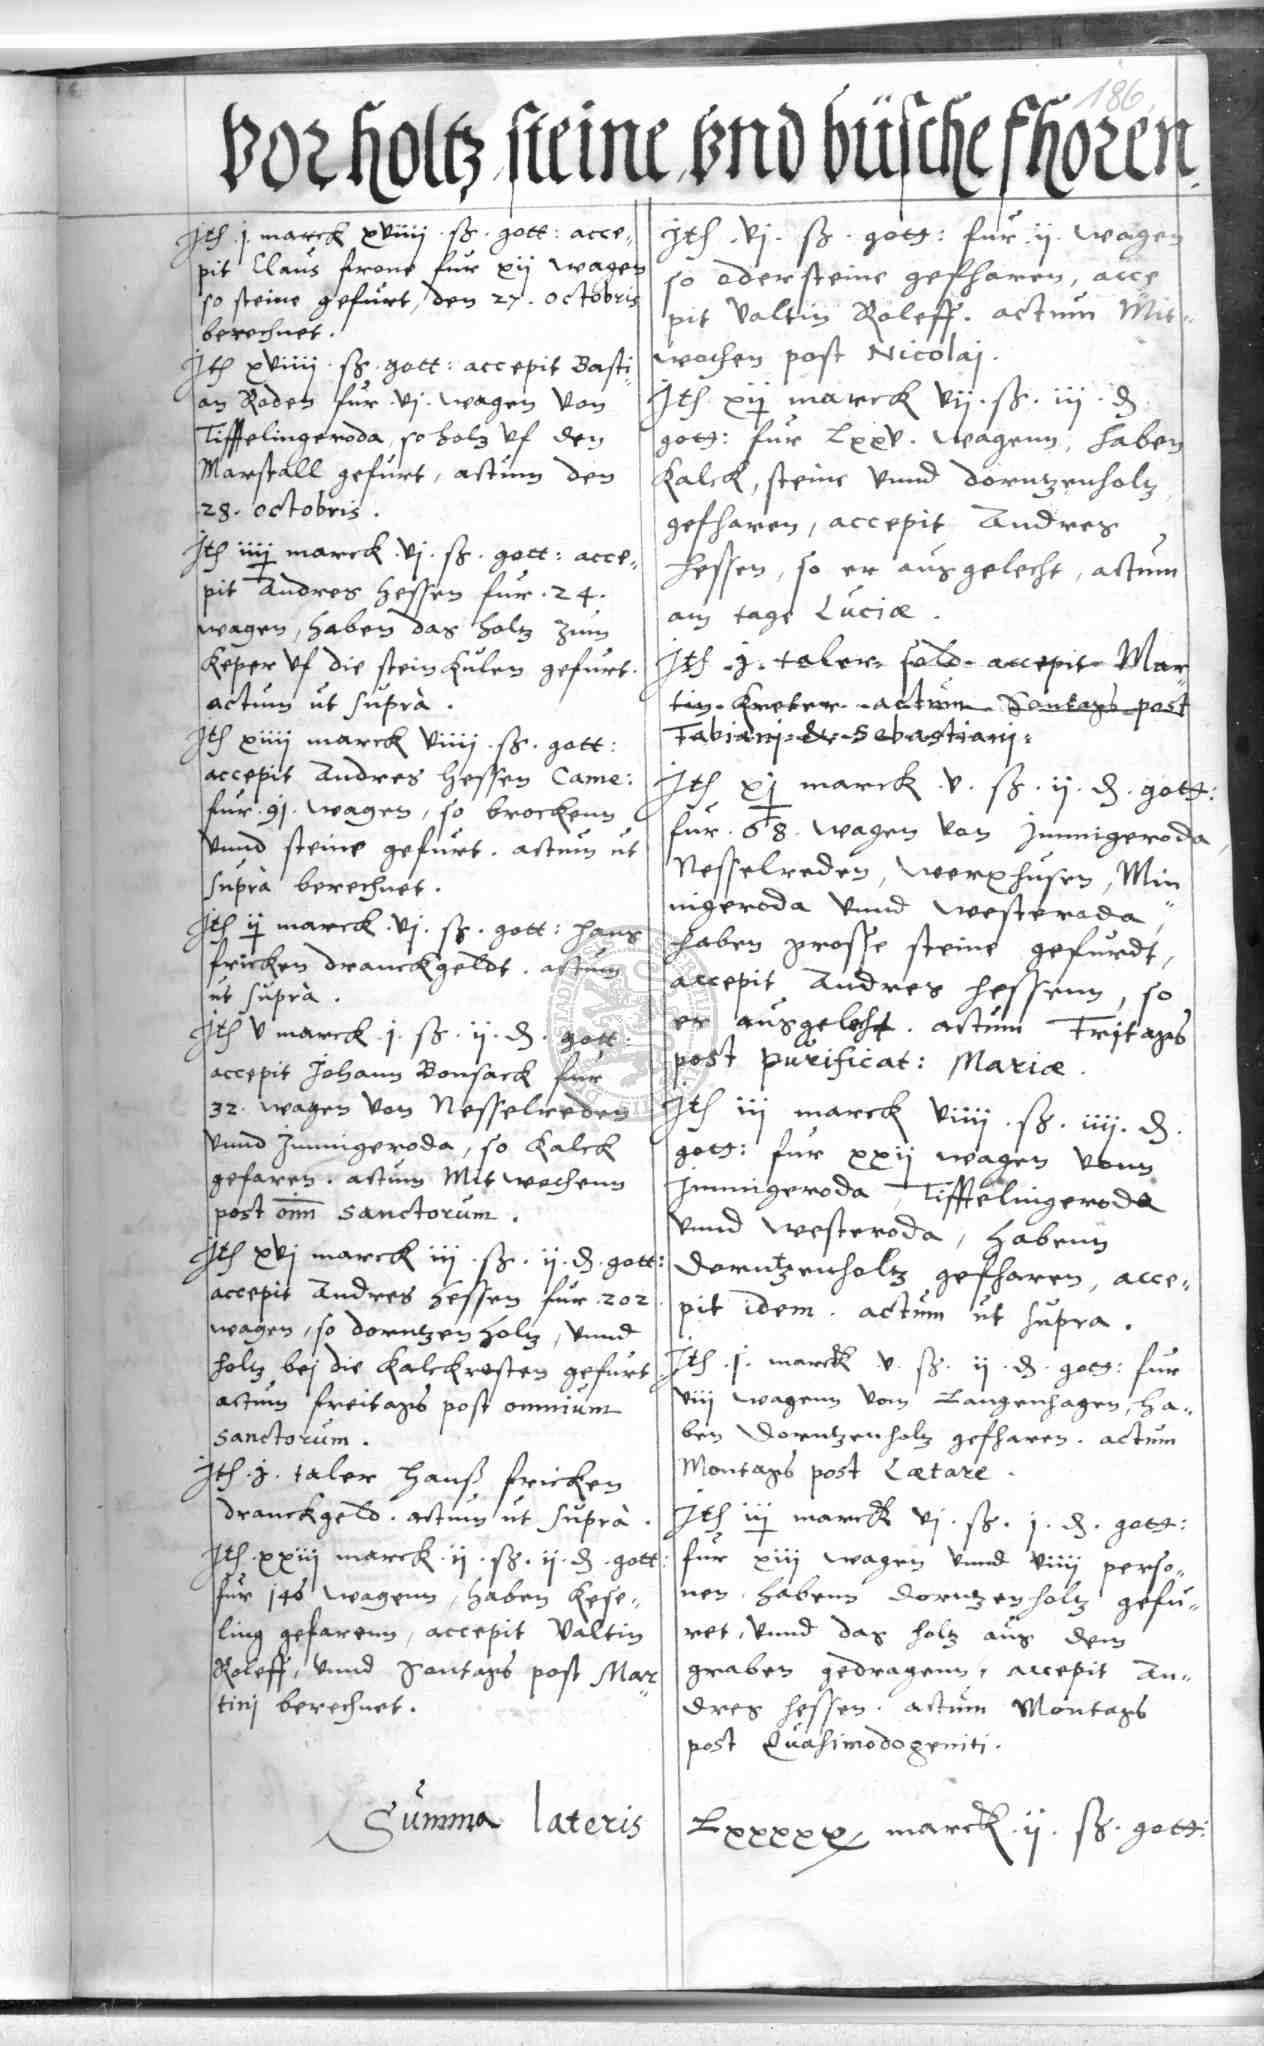 186
Vor holtz, steine, vnd büsche fhoren.
Ith j. marck xviiij. ß. gott: acce„
pit Claus frone fur xij wagen
so steine gefurt, den 27. octobris
berechnet.
Ith xviiij. ß. gott: accepit Basti„
an Roden fur .vj. wagen von
Tifftelingeroda, so holtz vf den
Marstall gefurt, actum den
28. octobris.
Ith iiij marck .vj. ß. gott: acce„
pit Andres Hessen fur .24.
wagen, haben das holtz zum
Keper vf die steinkulen gefurt.
actum ut suprà.
Ith xiiij marck viiij. ß. gott:
accepit Andres Hessen Came:
fur .91. wagen, so brockenn
vnnd steine gefurt. actum ut
suprà berechnet.
Ith ij marck .vj. ß. gott: Hans
fricken dranckgeldt. actum
ut suprà.
Ith v marck .j. ß. ij. d. gott:
accepit Johann Bonsack fur
32. wagen von Nesselreden
vnnd Jmmigeroda, so Kalck
gefaren. actum Mitwochenn
post om̄ sanctorum.
Ith xvj marck iij. ß. ij. d. gott:
accepit Andres Hessen fur .202.
wagen, so dorntzenholtz, vnnd
holtz bej die Kalckrosten gefurt
actum freitags post omnium
sanctorum.
Ith .j. taler Hanß fricken
dranckgeld. actum ut suprà.
Ith .xxiij marck .ij. ß. ij. d. gott:
fur 146 wagenn, haben Kese„
ling gefarenn, accepit Valtin
Roleff, vnnd Sontags post Mar„
tinj berechnet.
Ith .vj. ß. gott: fur .ij. wagen
so odersteine gefharen, acce
pit Valtin Roleff. actum Mit„
wochen post Nicolaj.
Ith xij marck vij. ß. iij. d
gott: fur Lxxv. wagenn, haben
Kalck, steine vnnd dorntzenholtz
gefharen, accepit Andres
Hessen, so er ausgelecht, actum
am tage Luciæ.
Ith .j. taler sold accepit Mar„
tin Kreter actum Sontags post
Fabianj & Sebastianj.
Ith xj marck .v. ß. ij. d. gott:
fur .68. wagen von Jmmigeroda,
Nesselreden, Werxhusen, Min„
nigeroda vnnd Westeroda,
haben grosse steine gefurdt,
accepit Andres Hessenn, so
er ausgelecht. actum Fritags
post purificat: Mariæ.
Ith iij marck viiij. ß. iiij. d.
gott: fur xxij wagen vonn
Jmmigeroda, Tifftelingeroda
vnnd Westeroda, habenn
dorntzenholtz gefharen, acce„
pit idem. actum ut supra.
Ith .j. marck .v. ß. ij. d. gott: fur
viij wagenn vom Langenhagen, ha„
ben dorntzenholtz gefharen. actum
Montags post Lætare.
Ith iij marck vj. ß. j. d. gott:
fur xiij wagen vnnd viiij perso„
nen. habenn dorntzenholtz gefu„
ret, vnnd das holtz aus dem
graben gedragenn, accepit An„
dres Hessen. actum Montags
post Quasimodogeniti.
Summa lateris Lxxxxx marck .ij. ß. gott: